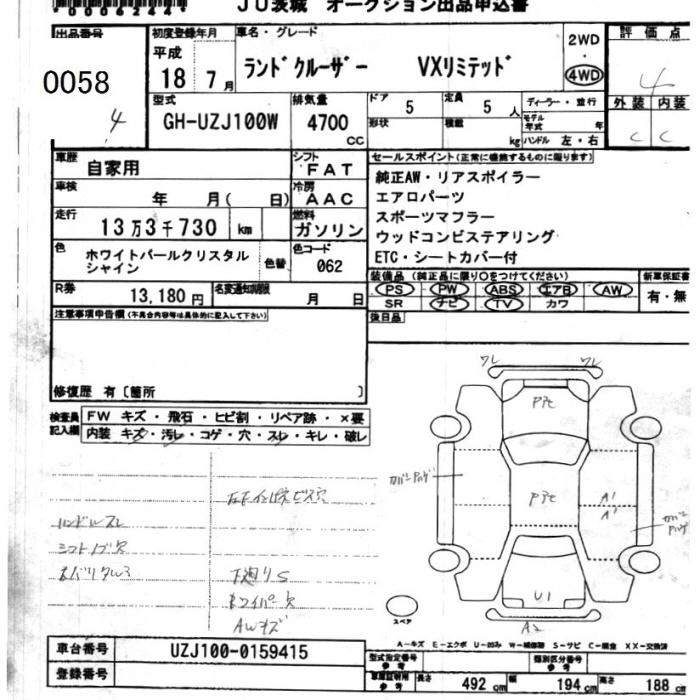 00062444
JU茨城 オークション出品申込書
出品番号 初度登録年月 車名・グレード 評価点
0058 平成 18 7月 ランドクルーザー VXリミテッド 2WD 4WD 4
4 型式 GH-UZJ100W 排気量 4700 CC ドア 5 定員 5人 ディーラー・並行 外装 内装
形状 積載 kg モデル年式 年 ハンドル 左・右 C C
車歴 自家用 シフト FAT セールスポイント(正常に機能するものに限ります)
車検 年 月( 日) 冷房 AAC 純正AW・リアスポイラー
エアロパーツ
走行 13万3千730 km 燃料 ガソリン スポーツマフラー
ウッドコンビステアリング
色 ホワイトパールクリスタルシャイン 色替 色コード 062 ETC・シートカバー付
装備品(純正品に限り○をつけてください) 新車保証書
R券 13,180円 名変通知期限 月 日 PS PW ABS エアB AW 有・無
SR ナビ TV カワ
注意事項申告欄(不具合内容等は具体的に記入して下さい) 後日品
修復歴 有〔箇所 〕
検査員記入欄 FW キズ・飛石・ヒビ割・リペア跡・×要
内装 キズ・汚レ・コゲ・穴・スレ・キレ・破レ
ワレ ワレ
Pﾀﾋ
Pﾀﾋ
A1
A1
U1
A2
ハンドルスレ
シフトノブ欠
下廻りS
Rワイパー欠
AWキズ
スペア
A-キズ E-エクボ U-凹み W-補修跡 S-サビ C-腐食 XX-交換済
車台番号 UZJ100-0159415 型式指定番号 参考 類別区分番号 参考
登録番号 車庫証明用 参考 長さ 492 cm 幅 194 cm 高さ 188 cm